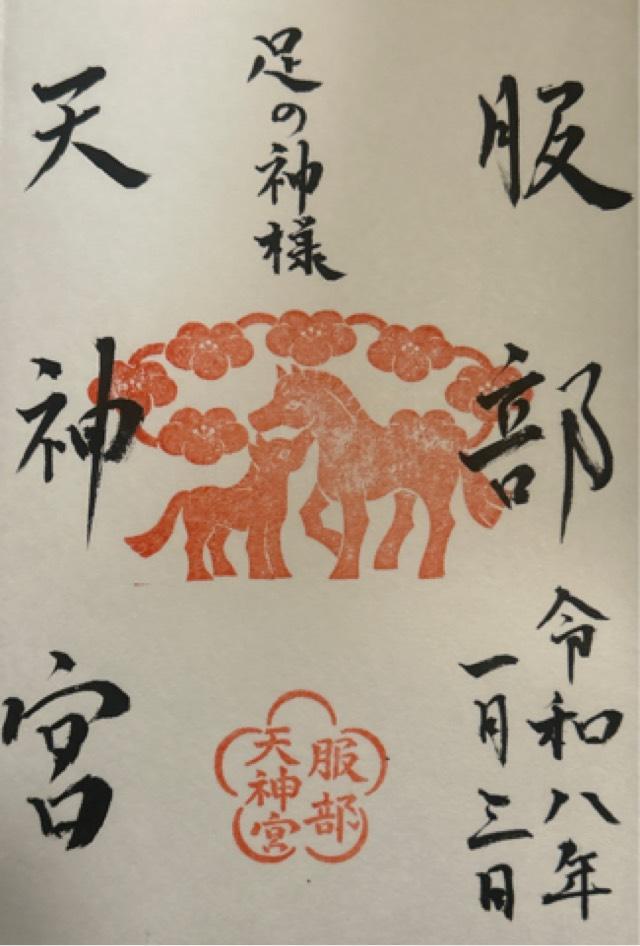 服部
令和八年
一月三日
足の神様
天神宮
服部
天神宮